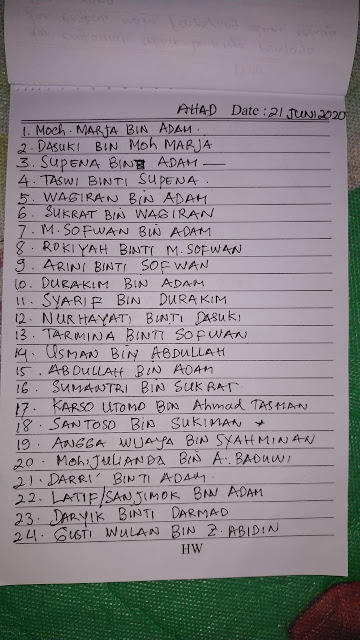 AHAD Date : 21 JUNI 2020
1. Moch. MARJA BIN ADAM.
2. DASUKI BIN MOH MARJA
3. SUPENA BIN ADAM —
4. TASWI BINTI SUPENA.
5. WAGIRAN BIN ADAM
6. SUKRAT BIN WAGIRAN
7. M. SOFWAN BIN ADAM
8. ROKIYAH BINTI M. SOFWAN
9. ARINI BINTI SOFWAN
10. DURAKIM BIN ADAM
11. SYARIF BIN DURAKIM
12. NURHAYATI BINTI DASUKI
13. TARMINA BINTI SOFWAN
14. USMAN BIN ABDULLAH
15. ABDULLAH BIN ADAM
16. SUMANTRI BIN SUKRAT
17. KARSO UTOMO BIN Ahmad TASMAN
18. SANTOSO BIN SUKIMAN
19. ANGGA WIJAYA BIN SYAHMINAN
20. MOH. JULIANDA BIN A. BADUWI
21. DARRI' BINTI ADAM.
22. LATIF/SANJIMOK BIN ADAM
23. DARYIK BINTI DARMAD
24. GUSTI WULAN BIN Z. ABIDIN
HW